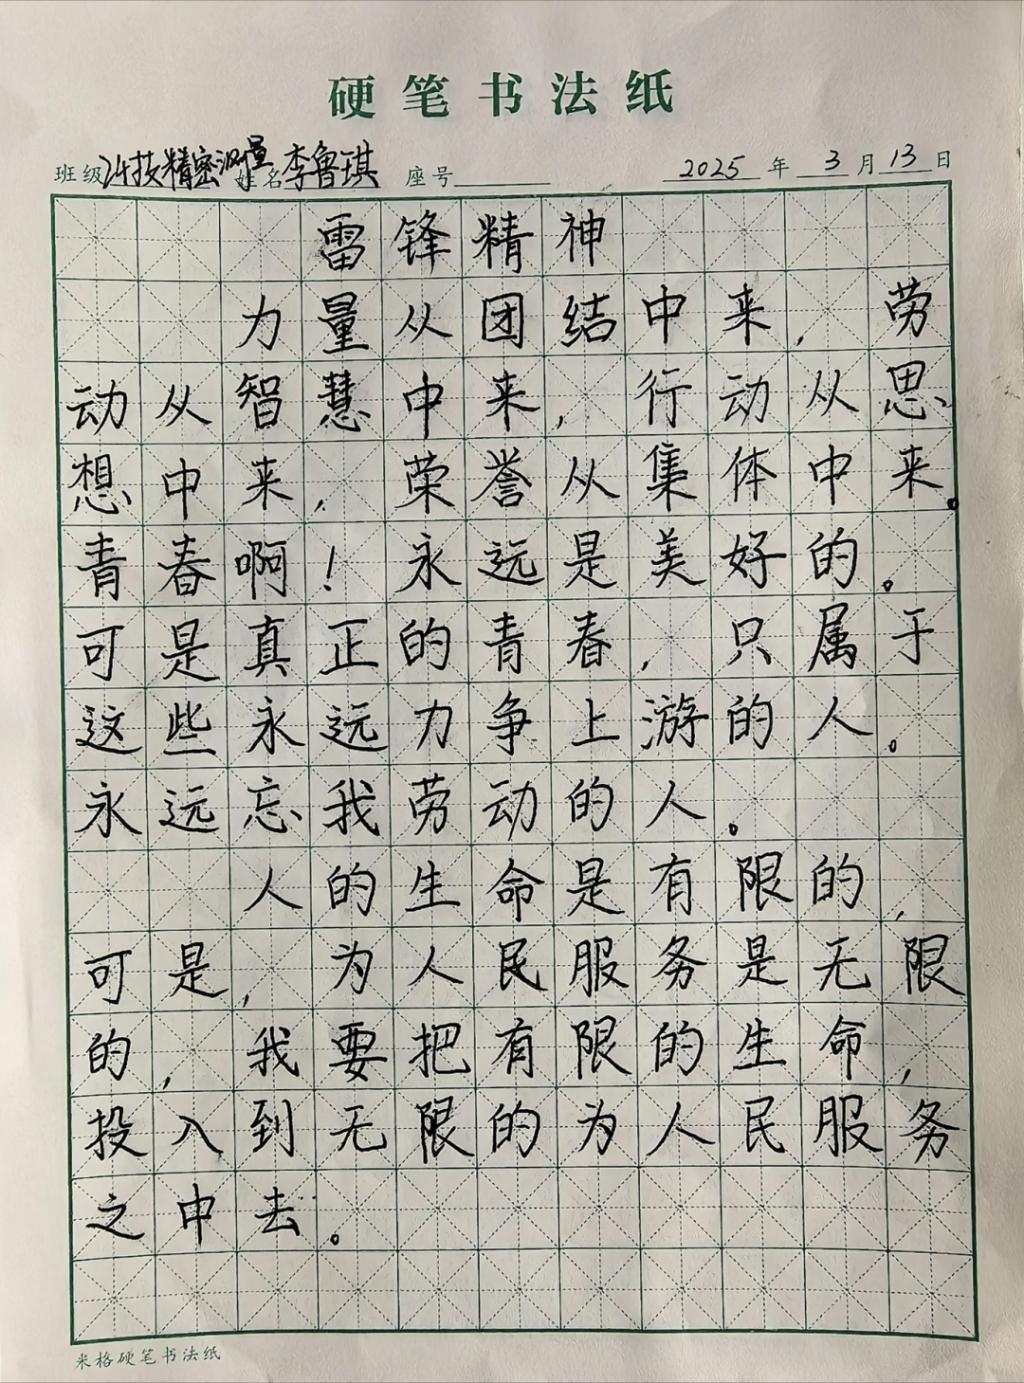 硬笔书法纸
班级24技精密测量 姓名李鲁琪 座号 2025年3月13日
雷锋精神
力量从团结中来,劳
动从智慧中来,行动从思
想中来,荣誉从集体中来。
青春啊!永远是美好的。
可是真正的青春,只属于
这些永远力争上游的人。
永远忘我劳动的人。
人的生命是有限的,
可是,为人民服务是无限
的,我要把有限的生命,
投入到无限的为人民服务
之中去。
米格硬笔书法纸